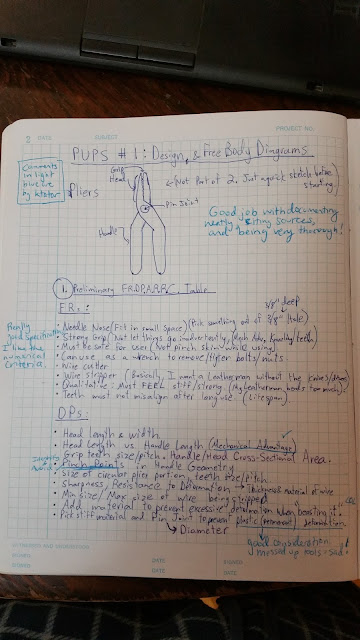 2 DATE SUBJECT PROJECT NO.
PUPS #1: Design, & Free Body Diagrams
Comments
in light
blue are
by
Pliers
Grip
Head
(Not Part of 2. Just a quick sketch before
starting)
Pin Joint
Handle
Good job with documenting
neatly, citing sources,
and being very thorough!
1. Preliminary FRDPARRC Table
3/8" deep
FRs:
Really
good specification
I like the
numerical
criteria.
• Needle Nose (Fit in small space) (Pick something out of 3/8" Hole)
• Strong Grip (Not let things go inadvertently, Mech Adv, quality teeth)
• Must be safe for user (Not pinch skin while using)
• Can use as a wrench to remove/tighten bolts/nuts
• Wire cutter
• Wire Stripper (Basically, I want a Leatherman without the knives/drivers)
• Qualitative: Must FEEL stiff/strong (My Leatherman bends too much)
• Teeth must not misalign after long use (Lifespan)
DPs:
• Head length & width
• Head Length vs Handle Length (Mechanical Advantage)
• Grip teeth size/pitch • Handle/Head Cross-Sectional Area.
• Pinch points in Handle Geometry
• Size of circular plier portion, teeth size/pitch
• Sharpness, Resistance to Deformation • Thickness material of wire
• Min size/Max size of wire being stripped
• Add material to prevent excessive deformation when boosting it
• Pick stiff material and Pin Joint to prevent plastic (permanent) deformation
Diameter
good consideration.
messed up tools = sad
WITNESSED AND UNDERSTOOD
SIGNED
DATE
SIGNED
DATE